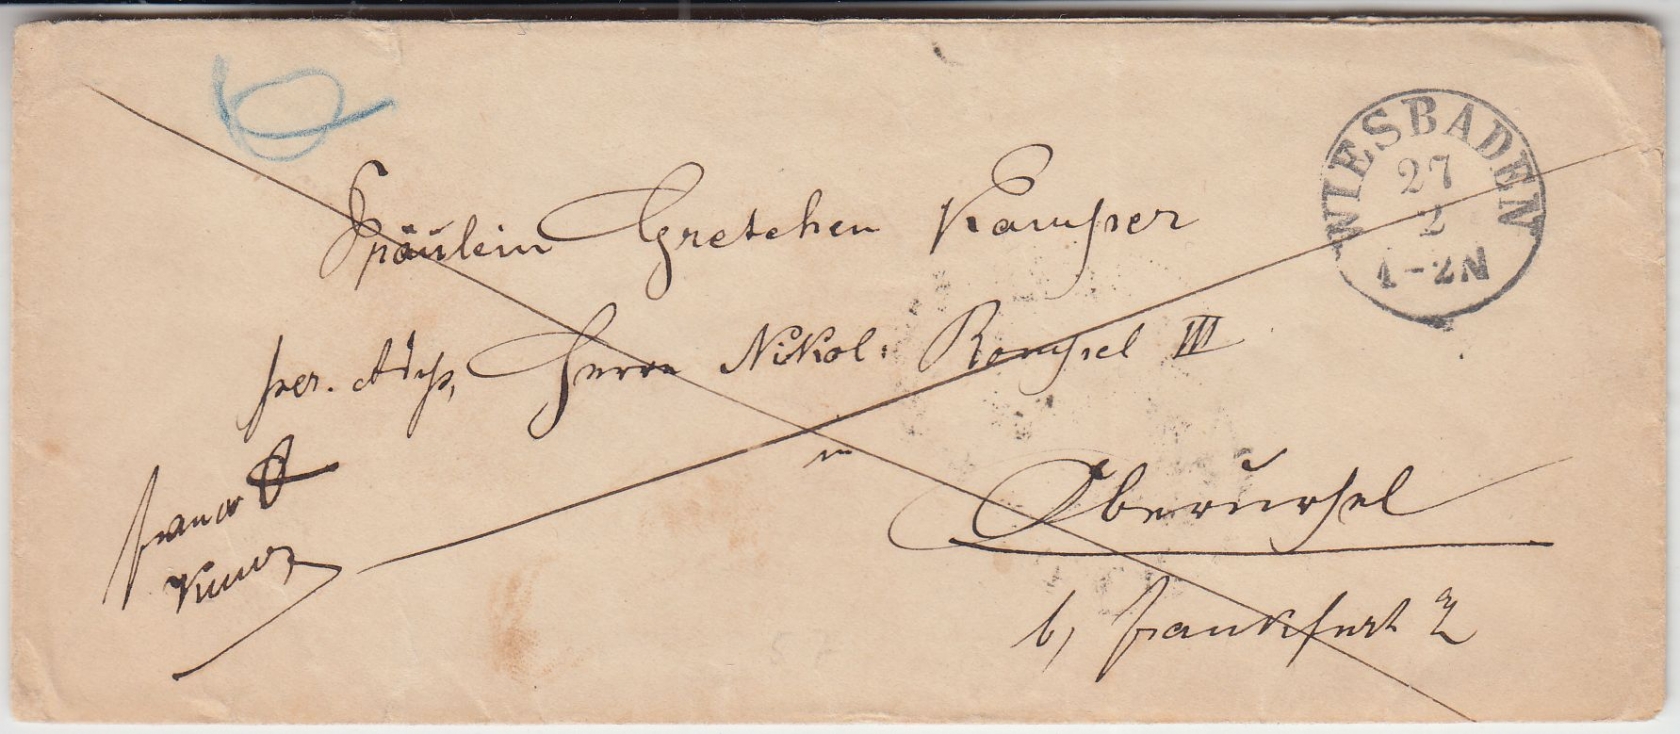 WIESBADEN
27
2
1-2N
Fräulein Gretchen Kamper
per. Adr. Herrn Nikol. Rompel III
in
Oberursel
b/ Frankfurt
franco